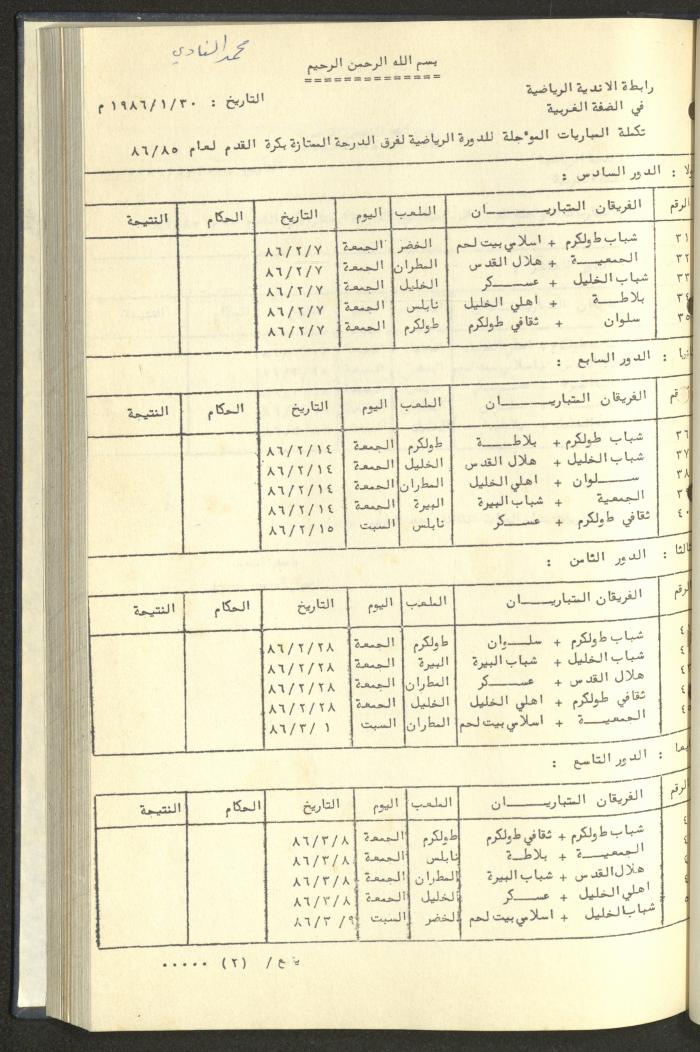 محمد النادي
بسم الله الرحمن الرحيم
رابطة الاندية الرياضية
في الضفة الغربية
التاريخ : ١٩٨٦/١/٣٠ م
تكملة المباريات الموءجلة للدورة الرياضية لفرق الدرجة الممتازة بكرة القدم لعام ٨٦/٨٥
ولا : الدور السادس :
الرقم الفريقان المتباريـــــان الملعب اليوم التاريخ الحكام النتيجة
٣١ شباب طولكرم + اسلامي بيت لحم الخضر الجمعة ٨٦/٢/٧
٣٢ الجمعيـــة + هلال القدس المطران الجمعة ٨٦/٢/٧
٣٣ شباب الخليل + عســـكر الخليل الجمعة ٨٦/٢/٧
٣٤ بلاطـــة + اهلي الخليل نابلس الجمعة ٨٦/٢/٧
٣٥ سلوان + ثقافي طولكرم طولكرم الجمعة ٨٦/٢/٧
نيا : الدور السابع :
رقم الفريقان المتباريـــــان الملعب اليوم التاريخ الحكام النتيجة
٣٦ شباب طولكرم + بلاطـــة طولكرم الجمعة ٨٦/٢/١٤
٣٧ شباب الخليل + هلال القدس الخليل الجمعة ٨٦/٢/١٤
٣٨ ســـلوان + اهلي الخليل المطران الجمعة ٨٦/٢/١٤
٣ الجمعية + شباب البيرة البيرة الجمعة ٨٦/٢/١٤
٤٠ ثقافي طولكرم + عســـكر نابلس السبت ٨٦/٢/١٥
ثالثا : الدور الثامن :
لرقم الفريقان المتباريـــــان الملعب اليوم التاريخ الحكام النتيجة
٤ شباب طولكرم + سلــوان طولكرم الجمعة ٨٦/٢/٢٨
٤ شباب الخليل + شباب البيرة البيرة الجمعة ٨٦/٢/٢٨
٤ هلال القدس + عســـكر المطران الجمعة ٨٦/٢/٢٨
٤ ثقافي طولكرم + اهلي الخليل الخليل الجمعة ٨٦/٢/٢٨
٤٥ الجمعيـــة + اسلامي بيت لحم المطران السبت ٨٦/٣/ ١
بعا : الدور التاسع :
الرقم الفريقان المتباريـــــان الملعب اليوم التاريخ الحكام النتيجة
٤ شباب طولكرم + ثقافي طولكرم طولكرم الجمعة ٨٦/٣/٨
٤ الجمعيـــة + بلاطـة نابلس الجمعة ٨٦/٣/٨
٤ هلال القدس + شباب البيرة المطران الجمعة ٨٦/٣/٨
٤ اهلي الخليل + عســـكر الخليل الجمعة ٨٦/٣/٨
٥ شباب الخليل + اسلامي بيت لحم الخضر السبت ٨٦/٣/٩
/ (٢) ٠٠٠٠٠